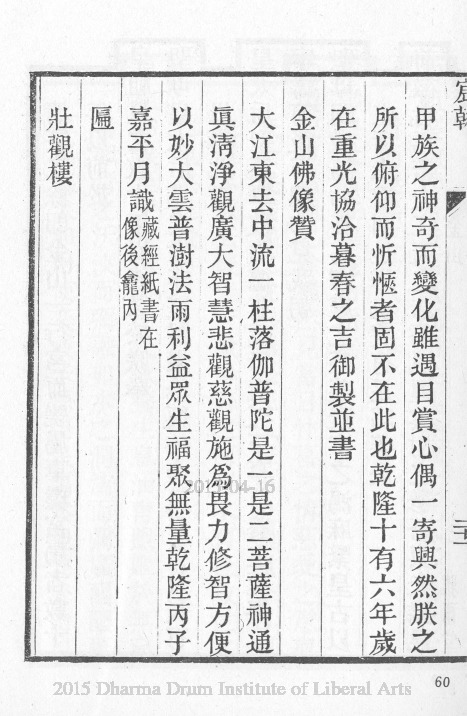 宸翰
二十二
甲族之神奇而變化雖遇目賞心偶一寄興然朕之
所以俯仰而忻愜者固不在此也乾隆十有六年歲
在重光協洽暮春之吉御製並書
金山佛像贊
大江東去中流一柱落伽普陀是一是二菩薩神通
眞淸淨觀廣大智慧悲觀慈觀施爲畏力修智方便
以妙大雲普澍法雨利益眾生福聚無量乾隆丙子
嘉平月識藏經紙書在
像後龕內
匾
壯觀樓
2015-04-16
60
2015 Dharma Drum Institute of Liberal Arts